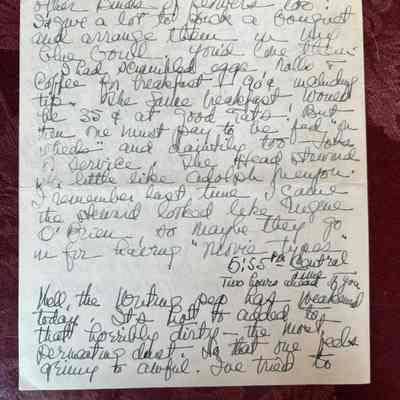 other kinds of flowers too!
I'd give a lot to pick a bouquet
and arrange them in my
blue bowl. You'd love them.
I had scrambled eggs rolls &
Coffee for breakfast 90¢ including
tip. The same breakfast would
be 35¢ at Good Eats! But
one must pay to be fed "on
wheels" and daintily too
service. The Head Steward
a little like Adolph Menjou.
I remember last time I came
the steward looked like Eugene
O'Brien so maybe they go
in for having "movie types"
5:55 PM Central time
Two hours ahead of you
Well, the writing pep has weakened
today. It's hot & added to
that horribly dirty — the most
permeating dust. So that one feels
grimy & awful. I've tried to